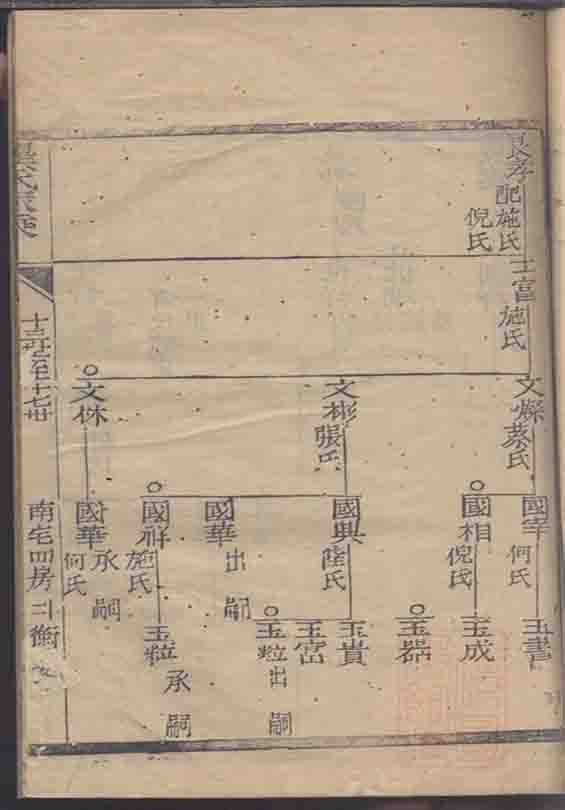 良孝配施氏
倪氏
士富施氏
文燦蔡氏
文彬張氏
文休
國宰何氏
國相倪氏
國興陸氏
國華出嗣
國祥施氏
國華承嗣
何氏
玉書
玉成
玉器
玉貴
玉富
玉粒出嗣
玉粒承嗣
十三世至十七世
南宅四房